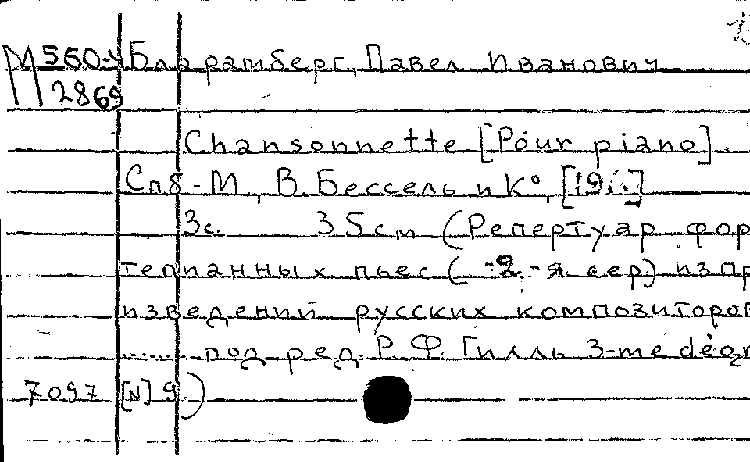 М 560-4 Бларамберг, Павел Иванович
2869
Chansonnette [Pour piano].
Спб - М, В. Бессель и К°,
3с. 35cm (Репертуар фор
тепианных пьес (-2-я сер) из пр
изведений русских композиторов
....... под ред Р. Ф. Гилль 3-me degr
7097 [N] 9)